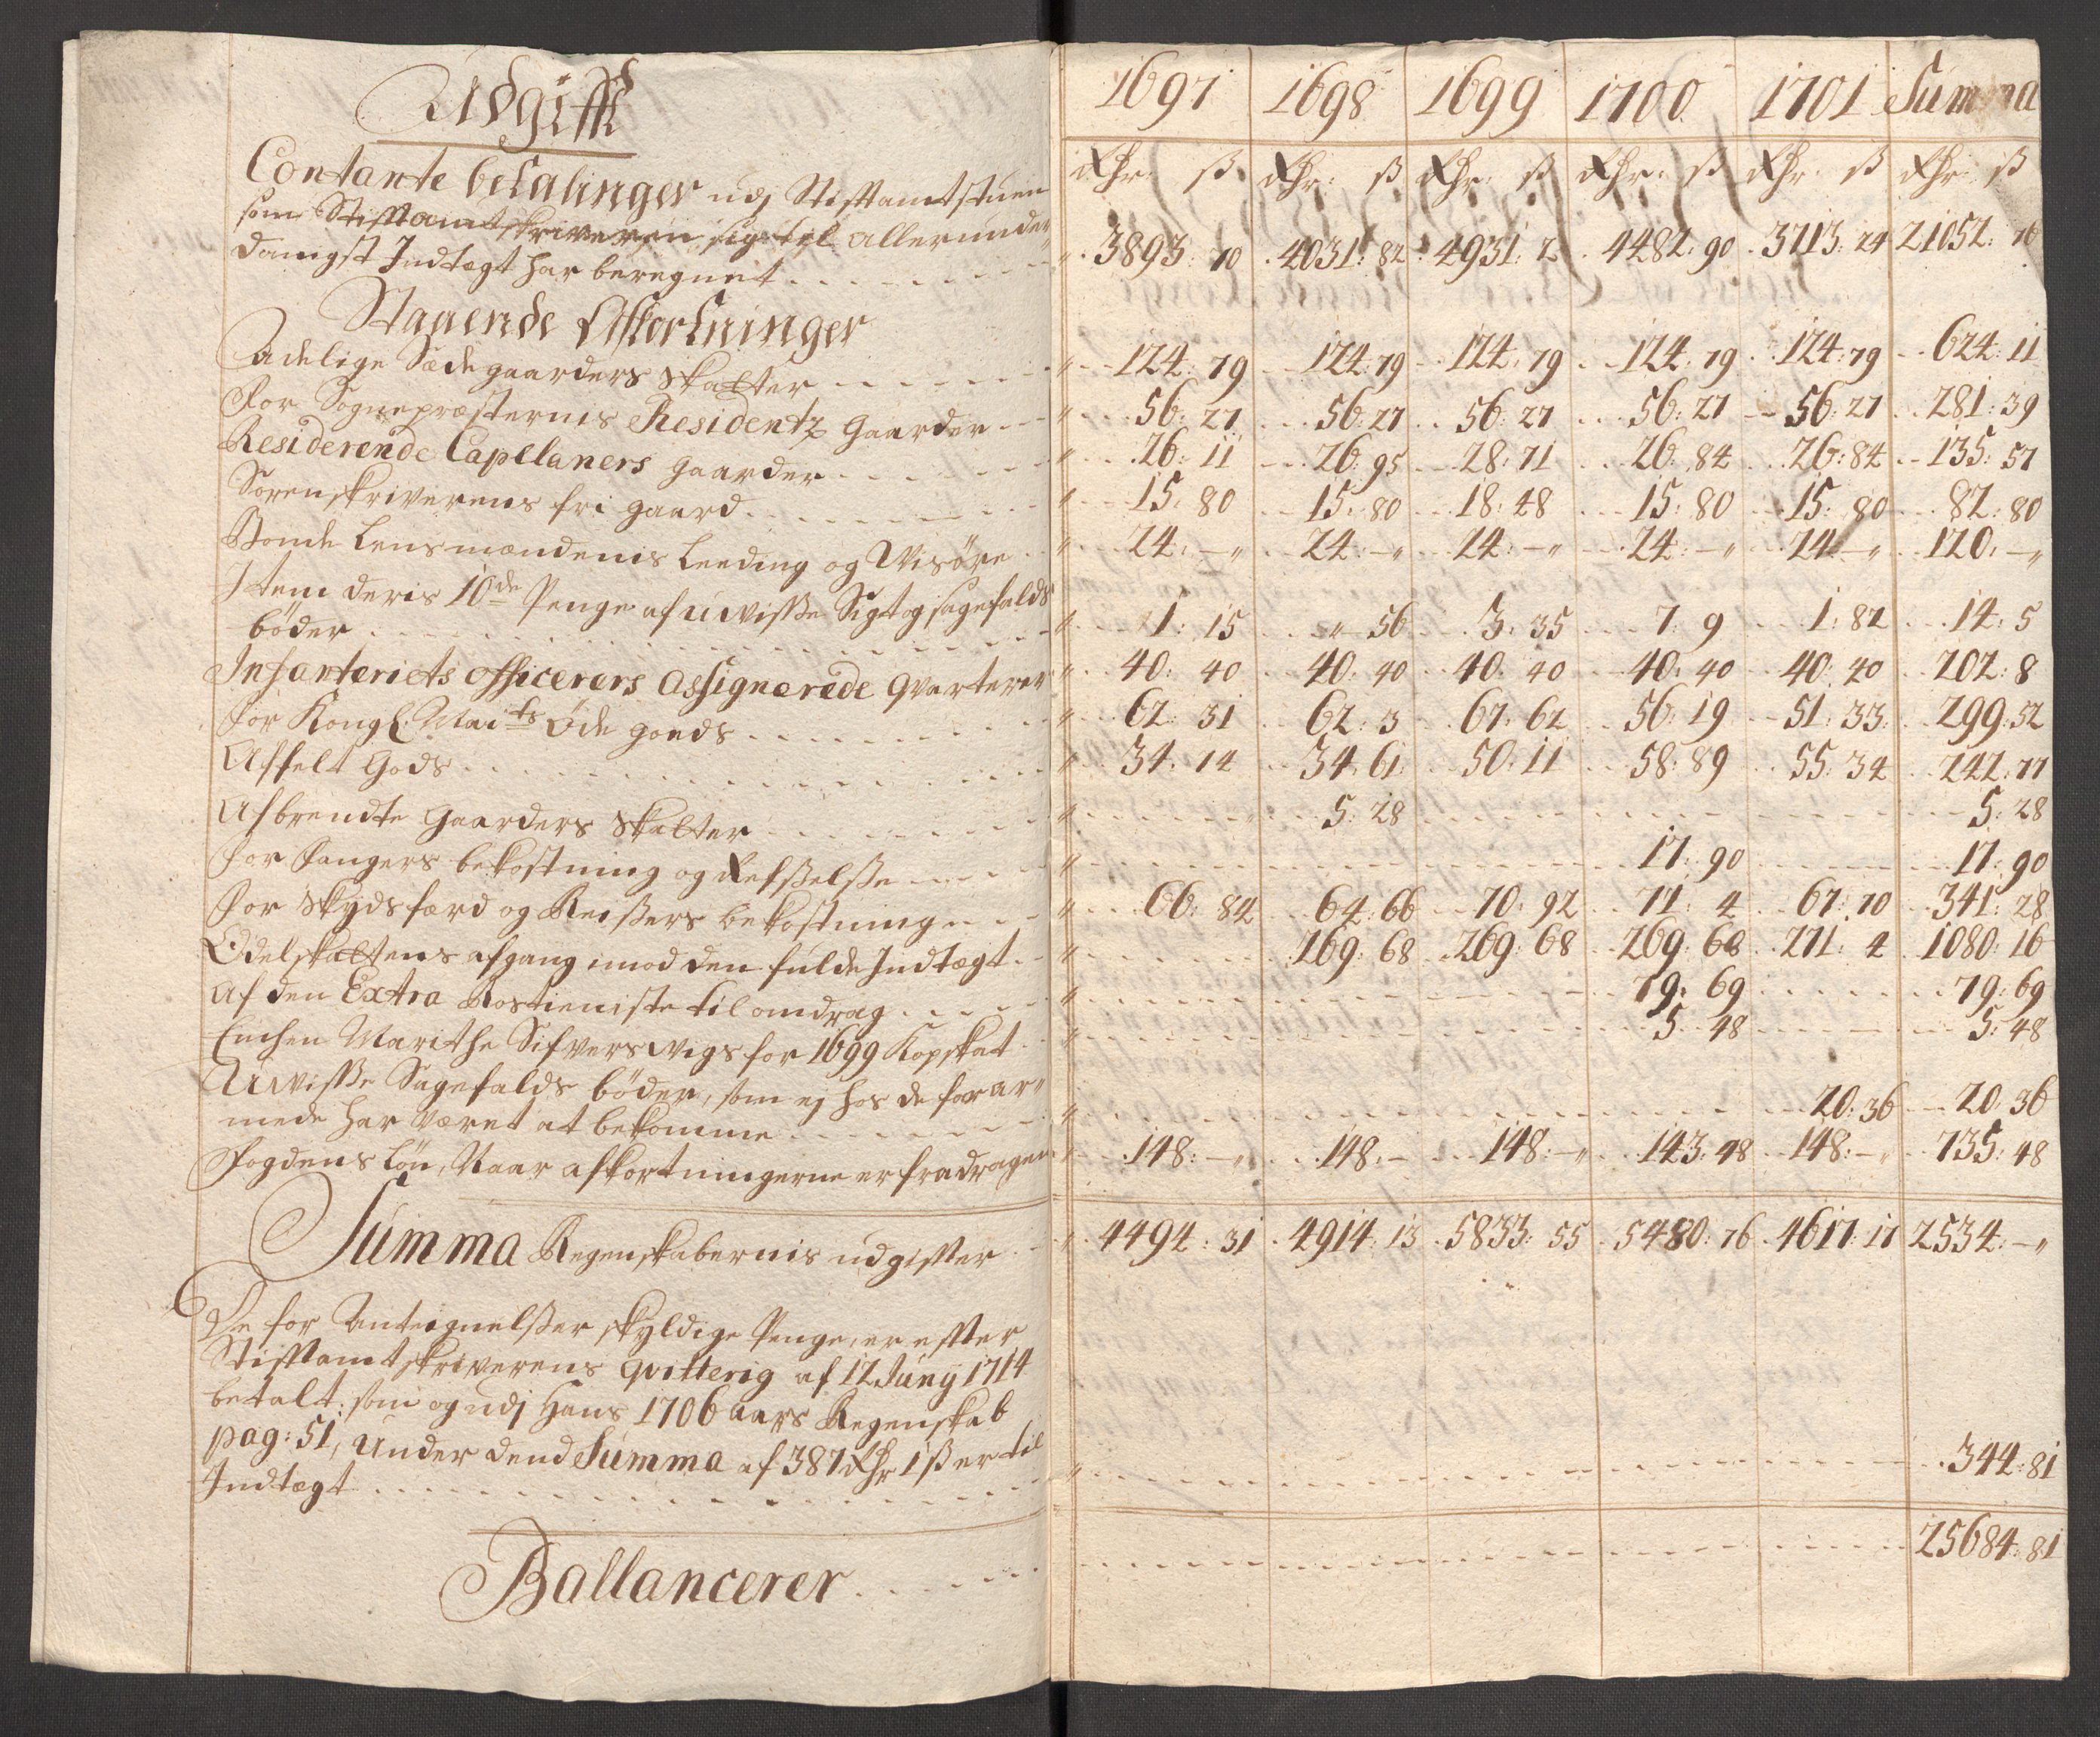 Udgifft
Contante betalinger udj Stifftamtstuen
som Stifftamtskriveren sig til allerunder
danigst Indtegt har beregnet
Staaende Afkortninger
Adelige Sædegaarders Skatter
For Sognepræsternis Residentz Gaarder
Residerende Capellaners gaarder
Sorenskriverens fri gaard
Bonde Lensmændenis Leeding og Visöre
Item deris 10de Penge af uvisse Sigt og sagefalds
böder
Infanteriets officerers Assignerede qvarterer
For Kongl. Maits Öde goeds
Affelt Gods
Afbrendte Gaarders Skatter
For Fangers bekostning og Refsselsse
For Skydsferd og Reissers bekostning
Odelskattens afgang imod den fulde Indtegt
Af den Extra Rostieniste til omdrag
Enchen Marithe Sifverswigs for 1699 Kopskat
Uwisse Sagefalds böder, som ej hos de forar-
mede har veret at bekomme
Fogdens Lön, Naar afkortningerne er fradragen
Summa Regenskabernis udgiffter
De for Anteignelsser skyldige Penge, er effter
Stifftamtskriverens qvittering af 12 Juny 1714
betalt, som og udj Hans 1706 aars Regenskab
pag: 51, under dend Summa af 387 Rhr 1 ß er til
Indtegt
Ballancerer
1697 1698 1699 1700 1701 Summa
Rhr: ß Rhr: ß Rhr: ß Rhr: ß Rhr: ß Rhr: ß
3893: 70 4031: 82 4931: 2 4482: 90 3713: 24 21052: 76
124: 79 124: 79 124: 79 124: 79 124: 79 624: 11
56: 27 56: 27 56: 27 56: 27 56: 27 281: 39
26: 11 26: 95 28: 71 26: 84 26: 84 135: 57
15: 80 15: 80 18: 48 15: 80 15: 80 82: 80
24: - „ 24: - „ 24: - „ 24: - „ 24: - „ 120: - „
1: 15 „ 56 3: 35 7: 9 1: 82 14: 5
40: 40 40: 40 40: 40 40: 40 40: 40 202: 8
62: 31 62: 3 67: 62 56: 19 51: 33 299: 52
34: 14 34: 61 50: 11 58: 89 55: 34 242: 77
5: 28 5: 28
17: 90 17: 90
66: 84 64: 66 70: 92 71: 4 67: 70 341: 28
269: 68 269: 68 269: 68 271: 4 1080: 16
79: 69 79: 69
5 48 5: 48
20: 36 20: 36
148: - „ 148: - 148: - „ 143: 48 148: - „ 735: 48
4494: 31 4914: 13 5833: 55 5480: 76 4617: 17 2534: - „
344: 81
25684: 81